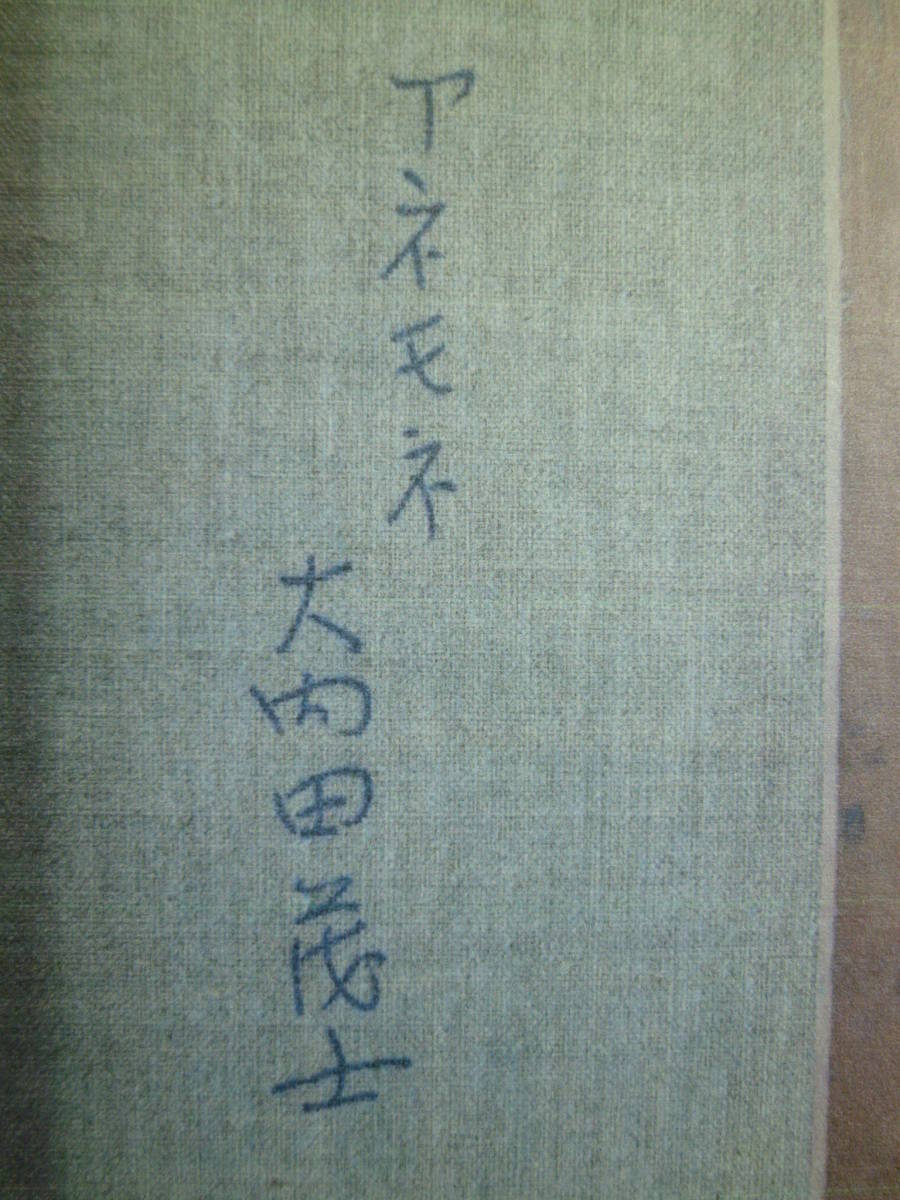 アネモネ
大内田茂士